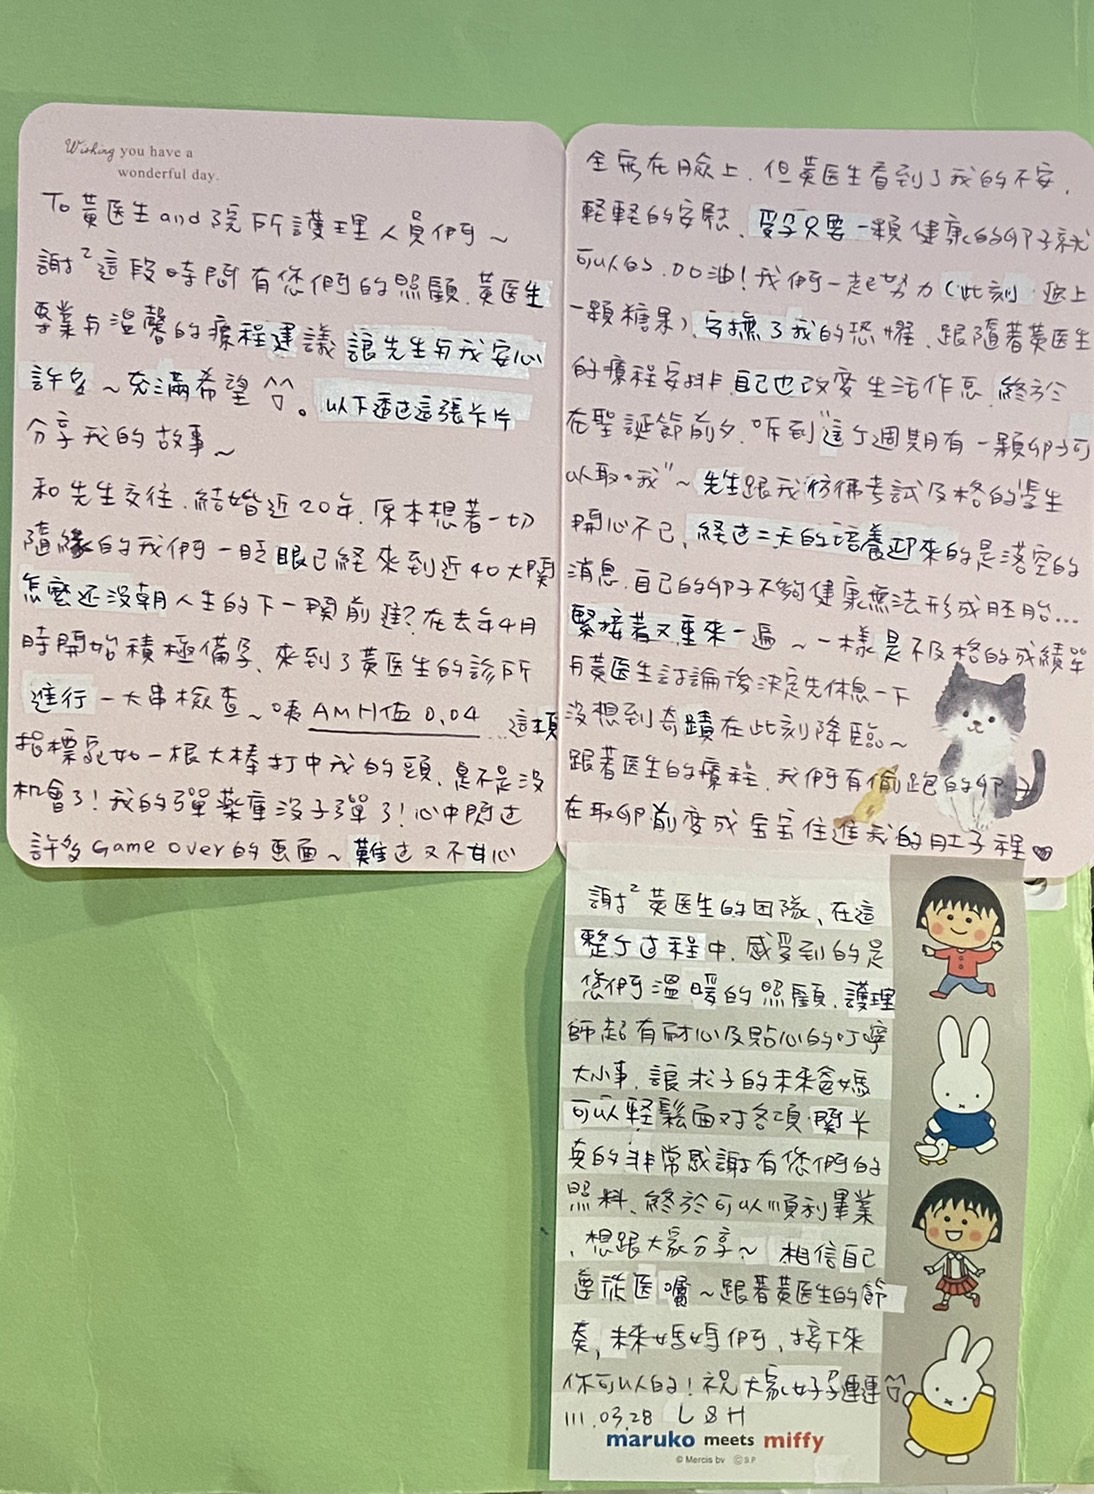 Wishing you have a
wonderful day.
To 黃医生 and 院所護理人員們~
謝²這段時間有您們的照顧.黃医生
專業与溫馨的療程建議 讓先生与我安心
許多~充滿希望^^。以下透过這張卡片
分享我的故事~
和先生交往、結婚近20年,原本想着一切
隨緣的我們一眨眼已経來到近40大関
怎麼还沒朝人生的下一關前進?在去年4月
時開始積極備孕、來到了黃医生的診所
進行一大串檢查~咦AMH值0.04...這項
指標宛如一根大棒打中我的頭,是不是沒
机會了!我的彈藥庫沒子彈了!心中閃过
許多Game over的画面~難过又不甘心
全寫在臉上.但黃医生看到了我的不安,
輕輕的安慰、受孕只要一顆健康的卵子就
可以的.加油!我們一起努力(此刻 遞上
一顆糖果)安撫了我的恐懼、跟隨著黃医生
的療程安排 自己也改变生活作息 終於
在聖誕節前夕.听到"這个週期有一顆卵子可
以取哦"~先生跟我彷彿考試及格的學生
開心不已、経过三天的培養迎來的是落空的
消息.自己的卵子不夠健康無法形成胚胎...
緊接著又重來一遍~一樣是不及格的成績單
与黃医生討論後決定先休息一下
沒想到奇蹟在此刻降臨~
跟著医生的療程.我們有偷跑的卵子
在取卵前变成宝宝住進我的肚子裡♥
謝²黃医生的団隊、在這
整个过程中.感受到的是
您們溫暖的照顧.護理
師超有耐心及貼心的叮嚀
大小事.讓求子的未來爸媽
可以輕鬆面对各項關卡
真的非常感謝有您們的
照料、終於可以順利畢業
,想跟大家分享~ 相信自己
遵從医囑~跟著黃医生的節
奏,未來媽媽們,接下來
你可以的!祝大家好孕連連^^
111.03.28 L S H
maruko meets miffy
© Mercis bv ©S.P